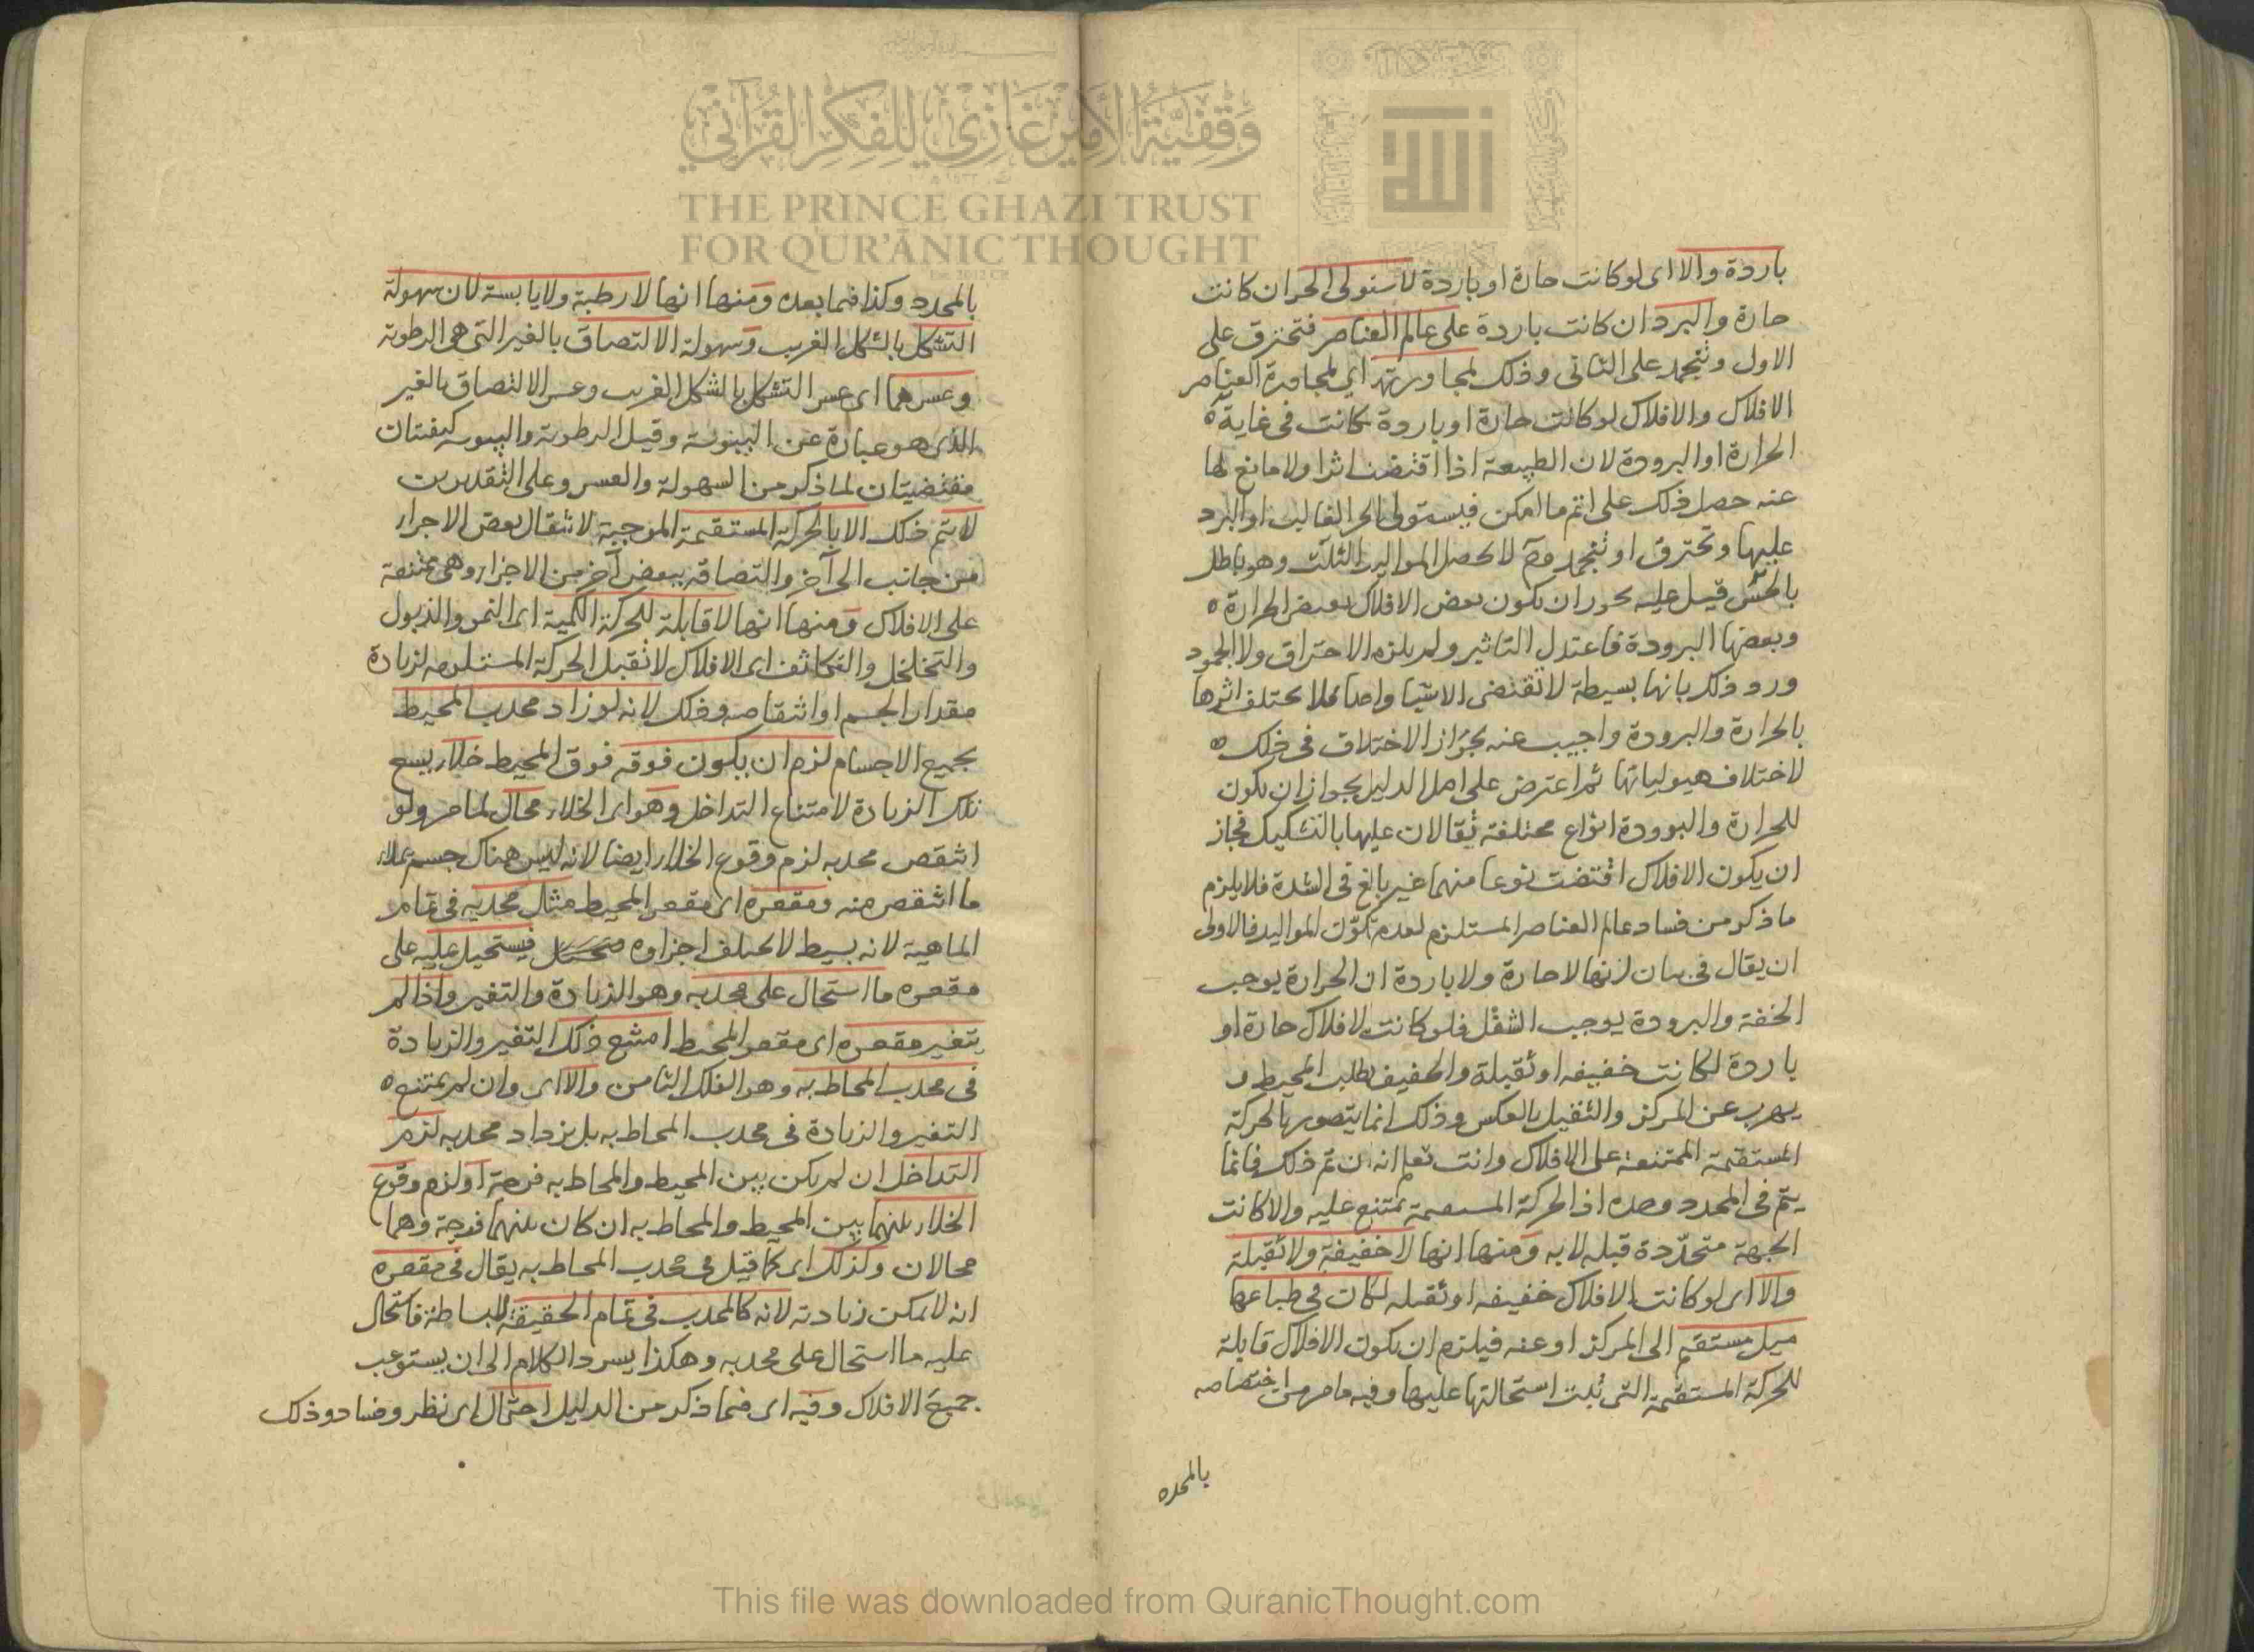 باردة والا اى لو كانت حارة او باردة لاستولى الحر ان كانت
حارة والبرد ان كانت باردة على عالم العناصر فتحترق على
الاول وتنجمد على الثانى وذلك لمجاورته اى لمجاورة العناصر
الافلاك والافلاك لو كانت حارة او باردة كانت فى غاية
الحرارة او البرودة لان الطبيعة اذا اقتضت اثرا ولا مانع لها
عنه حصل ذلك على اتم ما امكن فيستولى الحر الغالب او البرد
عليها وتحترق او تنجمد وح لا يحصل المواليد الثلث وهو باطل
بالحس قيل عليه يجوز ان يكون بعض الافلاك بعض الحرارة
وبعضها البرودة فاعتدل التاثير ولم يلزم الاحتراق ولا الجمود
ورد ذلك بانها بسيطة لا تقتضى الا شيا واحدا فلا يختلف اثرها
بالحرارة والبرودة واجيب عنه بجواز الاختلاف فى ذلك
لاختلاف هيولياتها ثم اعترض على اصل الدليل بجواز ان يكون
للحرارة والبرودة انواع مختلفة يقالان عليها بالتشكيك فجاز
ان يكون الافلاك اقتضت نوعا منهما غير بالغ فى الشدة فلا يلزم
ما ذكر من فساد عالم العناصر المستلزم لعدم تكون المواليد فالاولى
ان يقال فى بيان انها لا حارة ولا باردة ان الحرارة يوجب
الخفة والبرودة يوجب الثقل فلو كانت الافلاك حارة او
باردة لكانت خفيفه او ثقيلة والخفيف يطلب المحيط و
يهرب عن المركز والثقيل بالعكس وذلك انما يتصور بالحركة
المستقيمة الممتنعة على الافلاك وانت تعلم انه ان تم ذلك فانما
يتم فى المحدد وحده اذ الحركة المستقيمة تمتنع عليه والا كانت
الجهة متحددة قبله لا به ومنها انها لا خفيفة ولا ثقيلة
والا اى لو كانت الافلاك خفيفه او ثقيله لكان فى طباعها
ميل مستقيم الى المركز او عنه فيلزم ان يكون الافلاك قابلة
للحركة المستقيمة التى ثبت استحالتها عليها وفيه ما مر من اختصاصه
بالمحدد
بالمحدد وكذا فيما بعده ومنها انها لا رطبة ولا يابسة لان سهولة
التشكل بالشكل الغريب وسهولة الالتصاق بالغير التى هى الرطوبة
وعسرهما اى عسر التشكل بالشكل الغريب وعسر الالتصاق بالغير
الذى هو عبارة عن اليبوسة وقيل الرطوبة واليبوسه كيفيتان
مقتضيتان لما ذكر من السهولة والعسر وعلى التقديرين
لا يتم ذلك الا بالحركة المستقيمة الموجبة لانتقال بعض الاجزاء
من جانب الى آخر والتصاقه ببعض آخر من الاجزاء وهى ممتنعة
على الافلاك ومنها انها لا قابلة للحركة الكمية اى النمو والذبول
والتخلخل والتكاثف اى الافلاك لا تقبل الحركة المستلزمه لزيادة
مقدار الجسم او انتقاصه وذلك لانه لو زاد محدب المحيط
بجميع الاجسام لزم ان يكون فوقه فوق المحيط خلاء يسع
تلك الزيادة لامتناع التداخل وهو اى الخلاء محال لما مر ولو
انتقص محدبه لزم وقوع الخلاء ايضا لانه ليس هناك جسم يملاء
ما انتقص منه ومقعره اى مقعر المحيط مثال محدبه فى تمام
الماهية لانه بسيط لا يختلف اجزاوه فيستحيل عليه على
مقعره ما استحال على محدبه وهو الزيادة والتغير واذا لم
يتغير مقعره اى مقعر المحيط امتنع ذلك التغير والزيادة
فى محدب المحاط به وهو الفلك الثامن والا اى وان لم يمتنع
التغير والزيادة فى محدب المحاط به بل يزداد محدبه لزم
التداخل ان لم يكن بين المحيط والمحاط به فرجة او لزم وقوع
الخلاء بينهما بين المحيط والمحاط به ان كان بينهما فرجة وهما
محالان وكذلك اى كما قيل فى محدب المحاط به يقال فى مقعره
انه لا يمكن زيادته لانه كالمحدب فى تمام الحقيقة للبساطة فاستحال
عليه ما استحال على محدبه وهكذا يسرد الكلام الى ان يستوعب
جميع الافلاك وفيه اى فيما ذكر من الدليل احتمال اى نظر وفساد وذلك
وقفية الأمير غازي للفكر القرآني
THE PRINCE GHAZI TRUST
FOR QUR'ĀNIC THOUGHT
This file was downloaded from QuranicThought.com